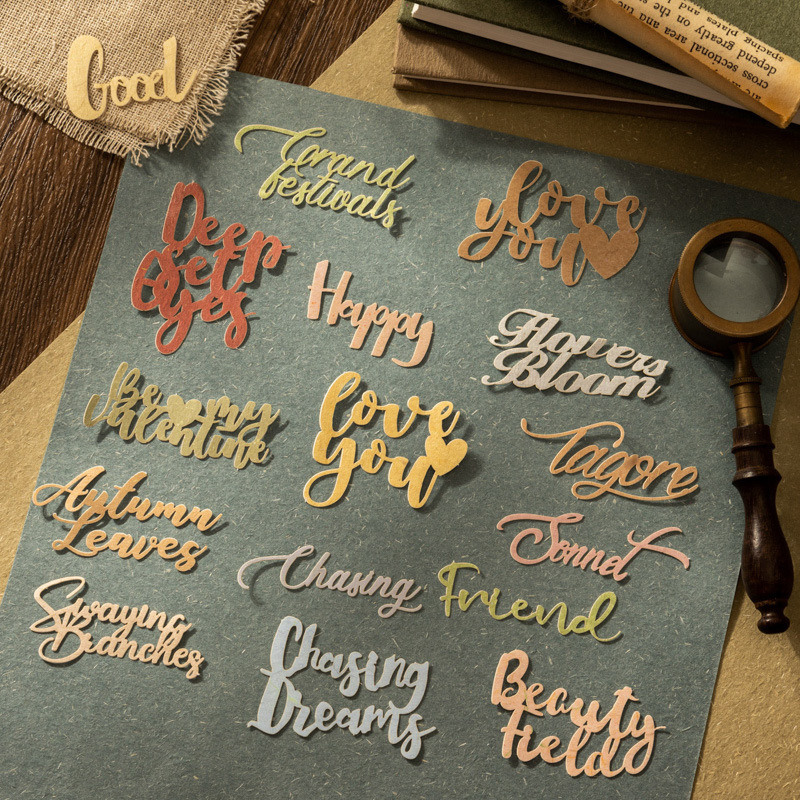 Good
are
cross sectional area and the
depend greatly on the
spacing plates and
Grand
festivals
love
you
Deep
Set
Eyes
Happy
Flowers
Bloom
Be my
Valentine
love
you
Tagore
Autumn
Leaves
Sonnet
Chasing
Friend
Swaying
Branches
Chasing
Dreams
Beauty
Field